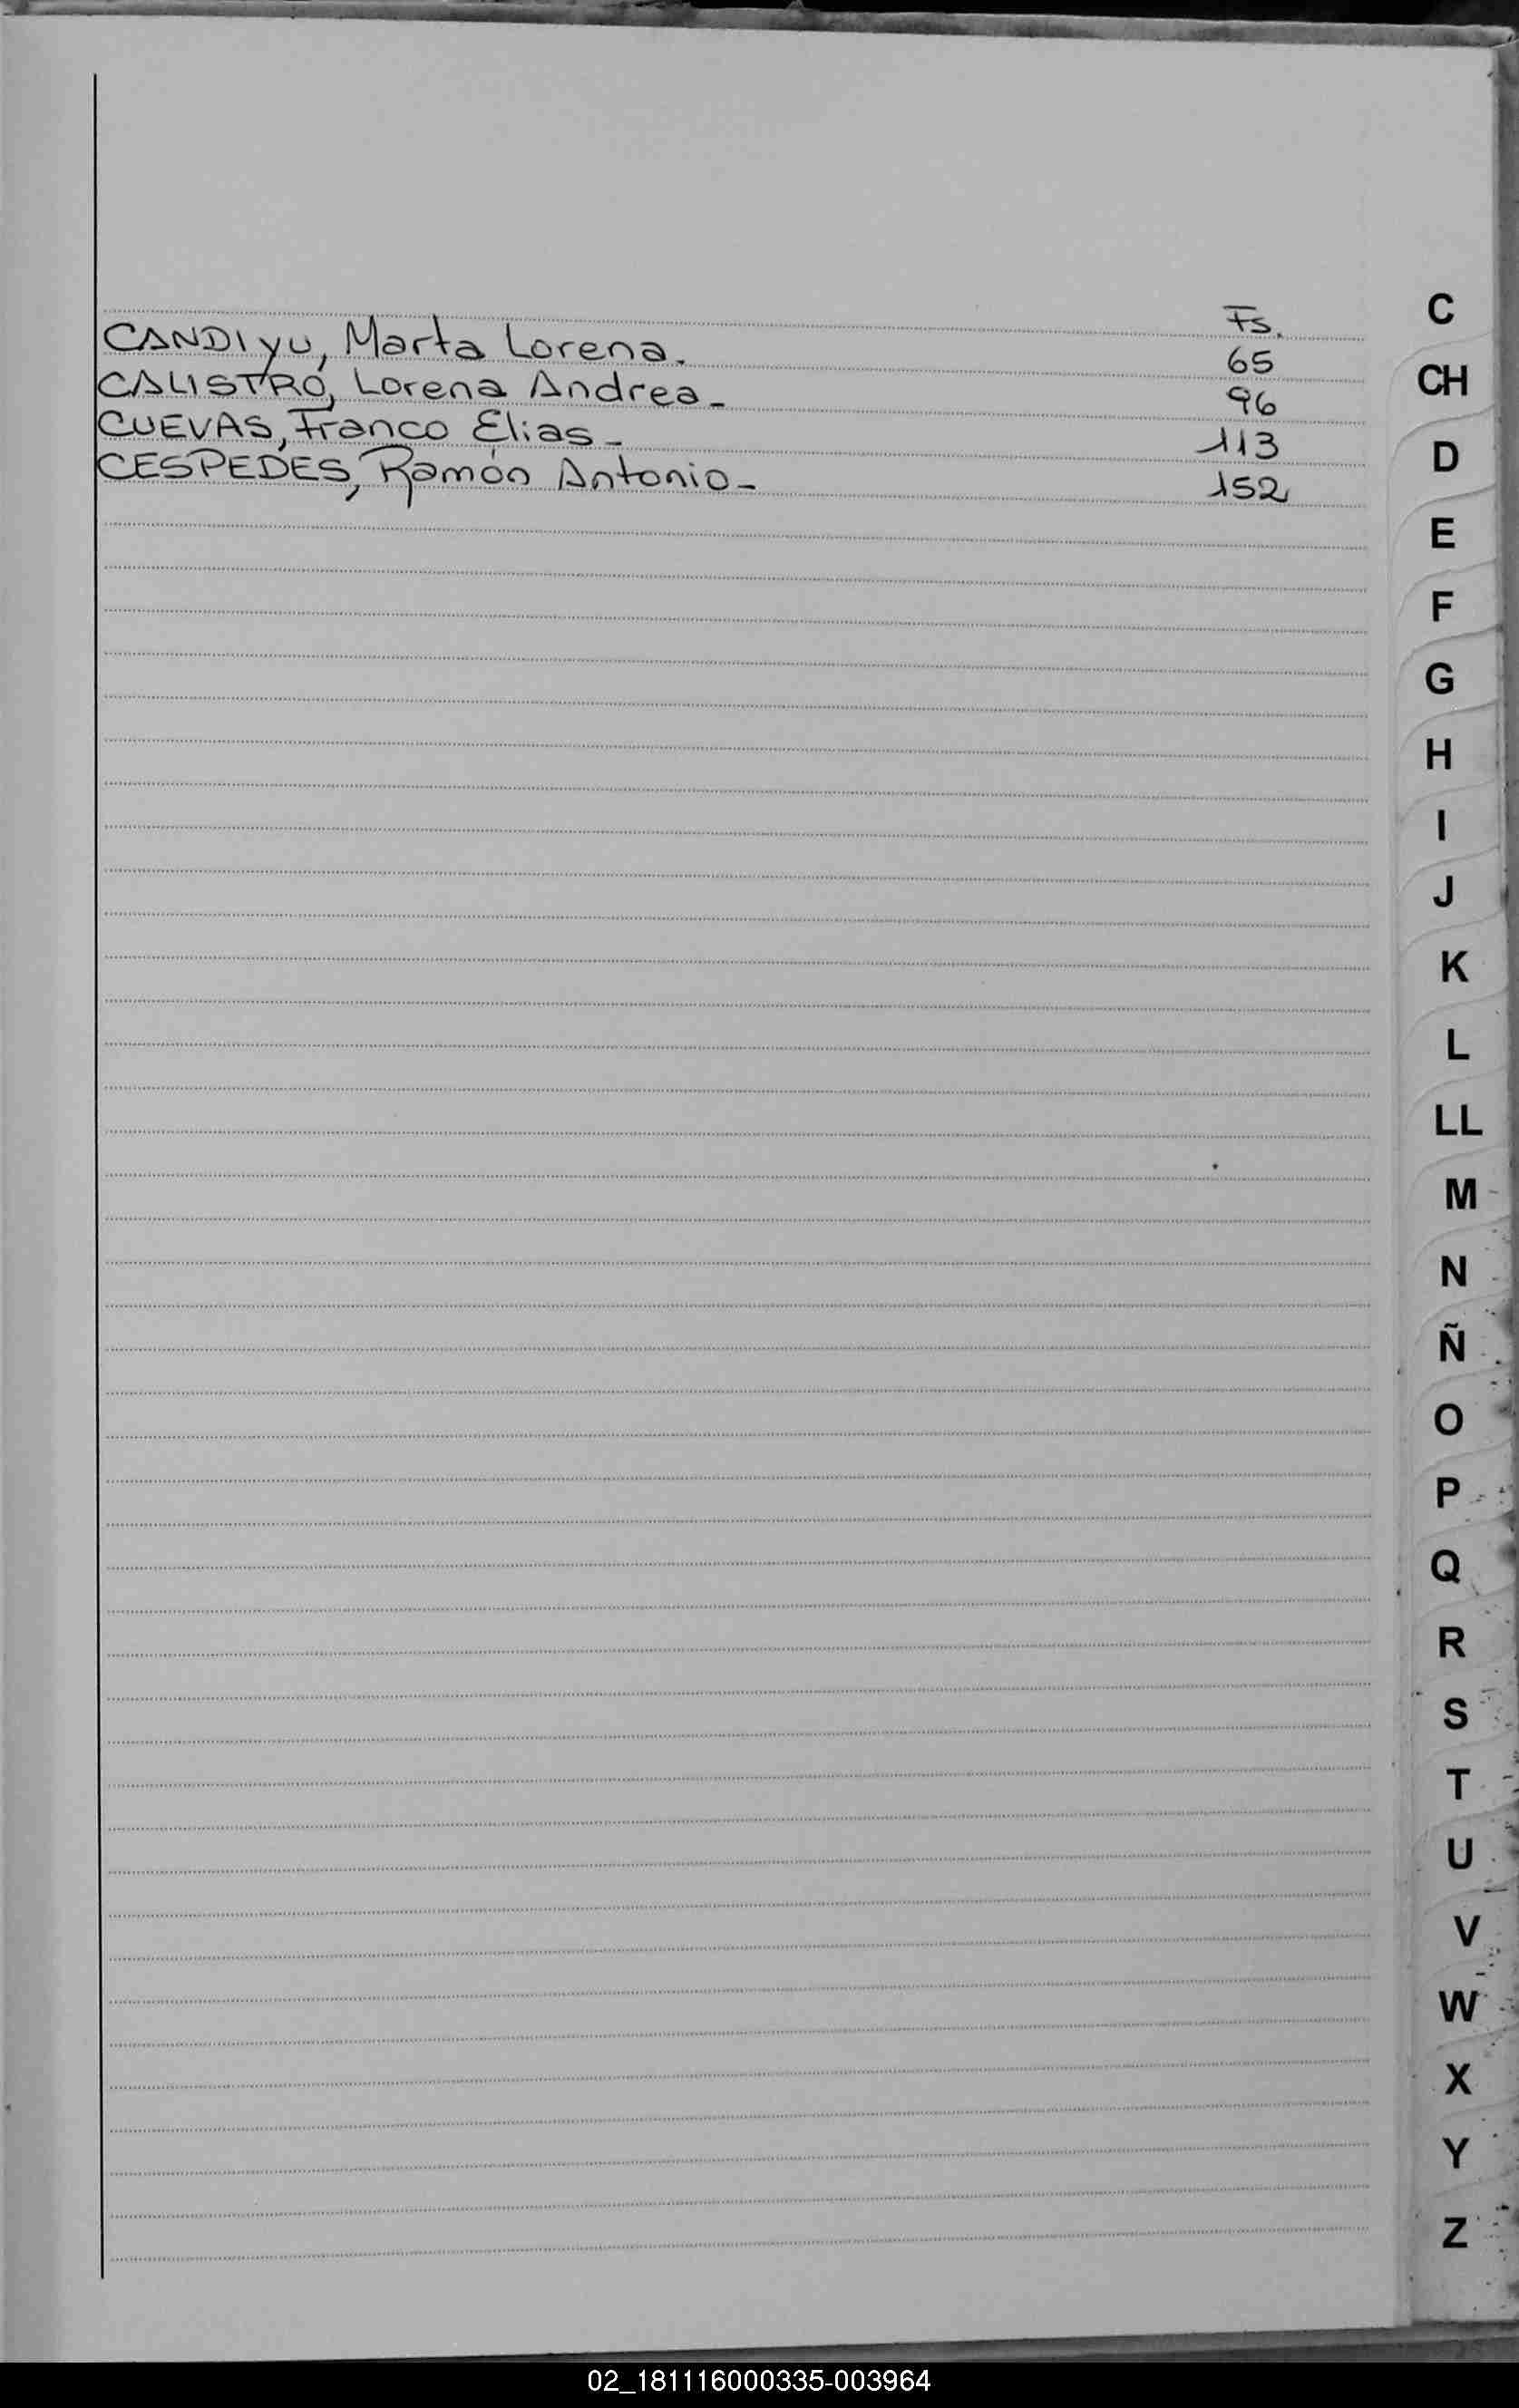 Fs.
CANDIYU, Marta Lorena. 65
CALISTRO, Lorena Andrea- 96
CUEVAS, Franco Elias- 113
CESPEDES, Ramón Antonio- 152
C
CH
D
E
F
G
H
I
J
K
L
LL
M
N
Ñ
O
P
Q
R
S
T
U
V
W
X
Y
Z
02_181116000335-003964